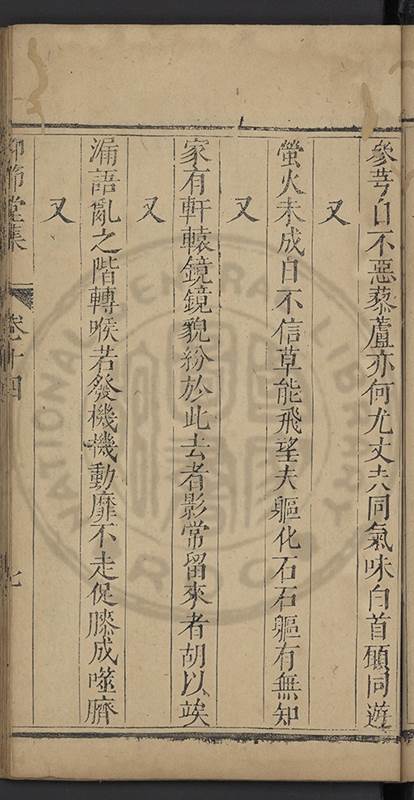 參芩自不惡藜蘆亦何尤丈夫同氣味白首願同遊
又
螢火未成日不信草能飛望夫軀化石石軀有無知
又
家有軒轅鏡鏡貌紛於此去者影常留來者胡以俟
又
漏語亂之階轉喉若發機機動靡不走促膝成噬臍
又
仰節堂集
卷十四
七
NATIONAL CENTRAL LIBRARY